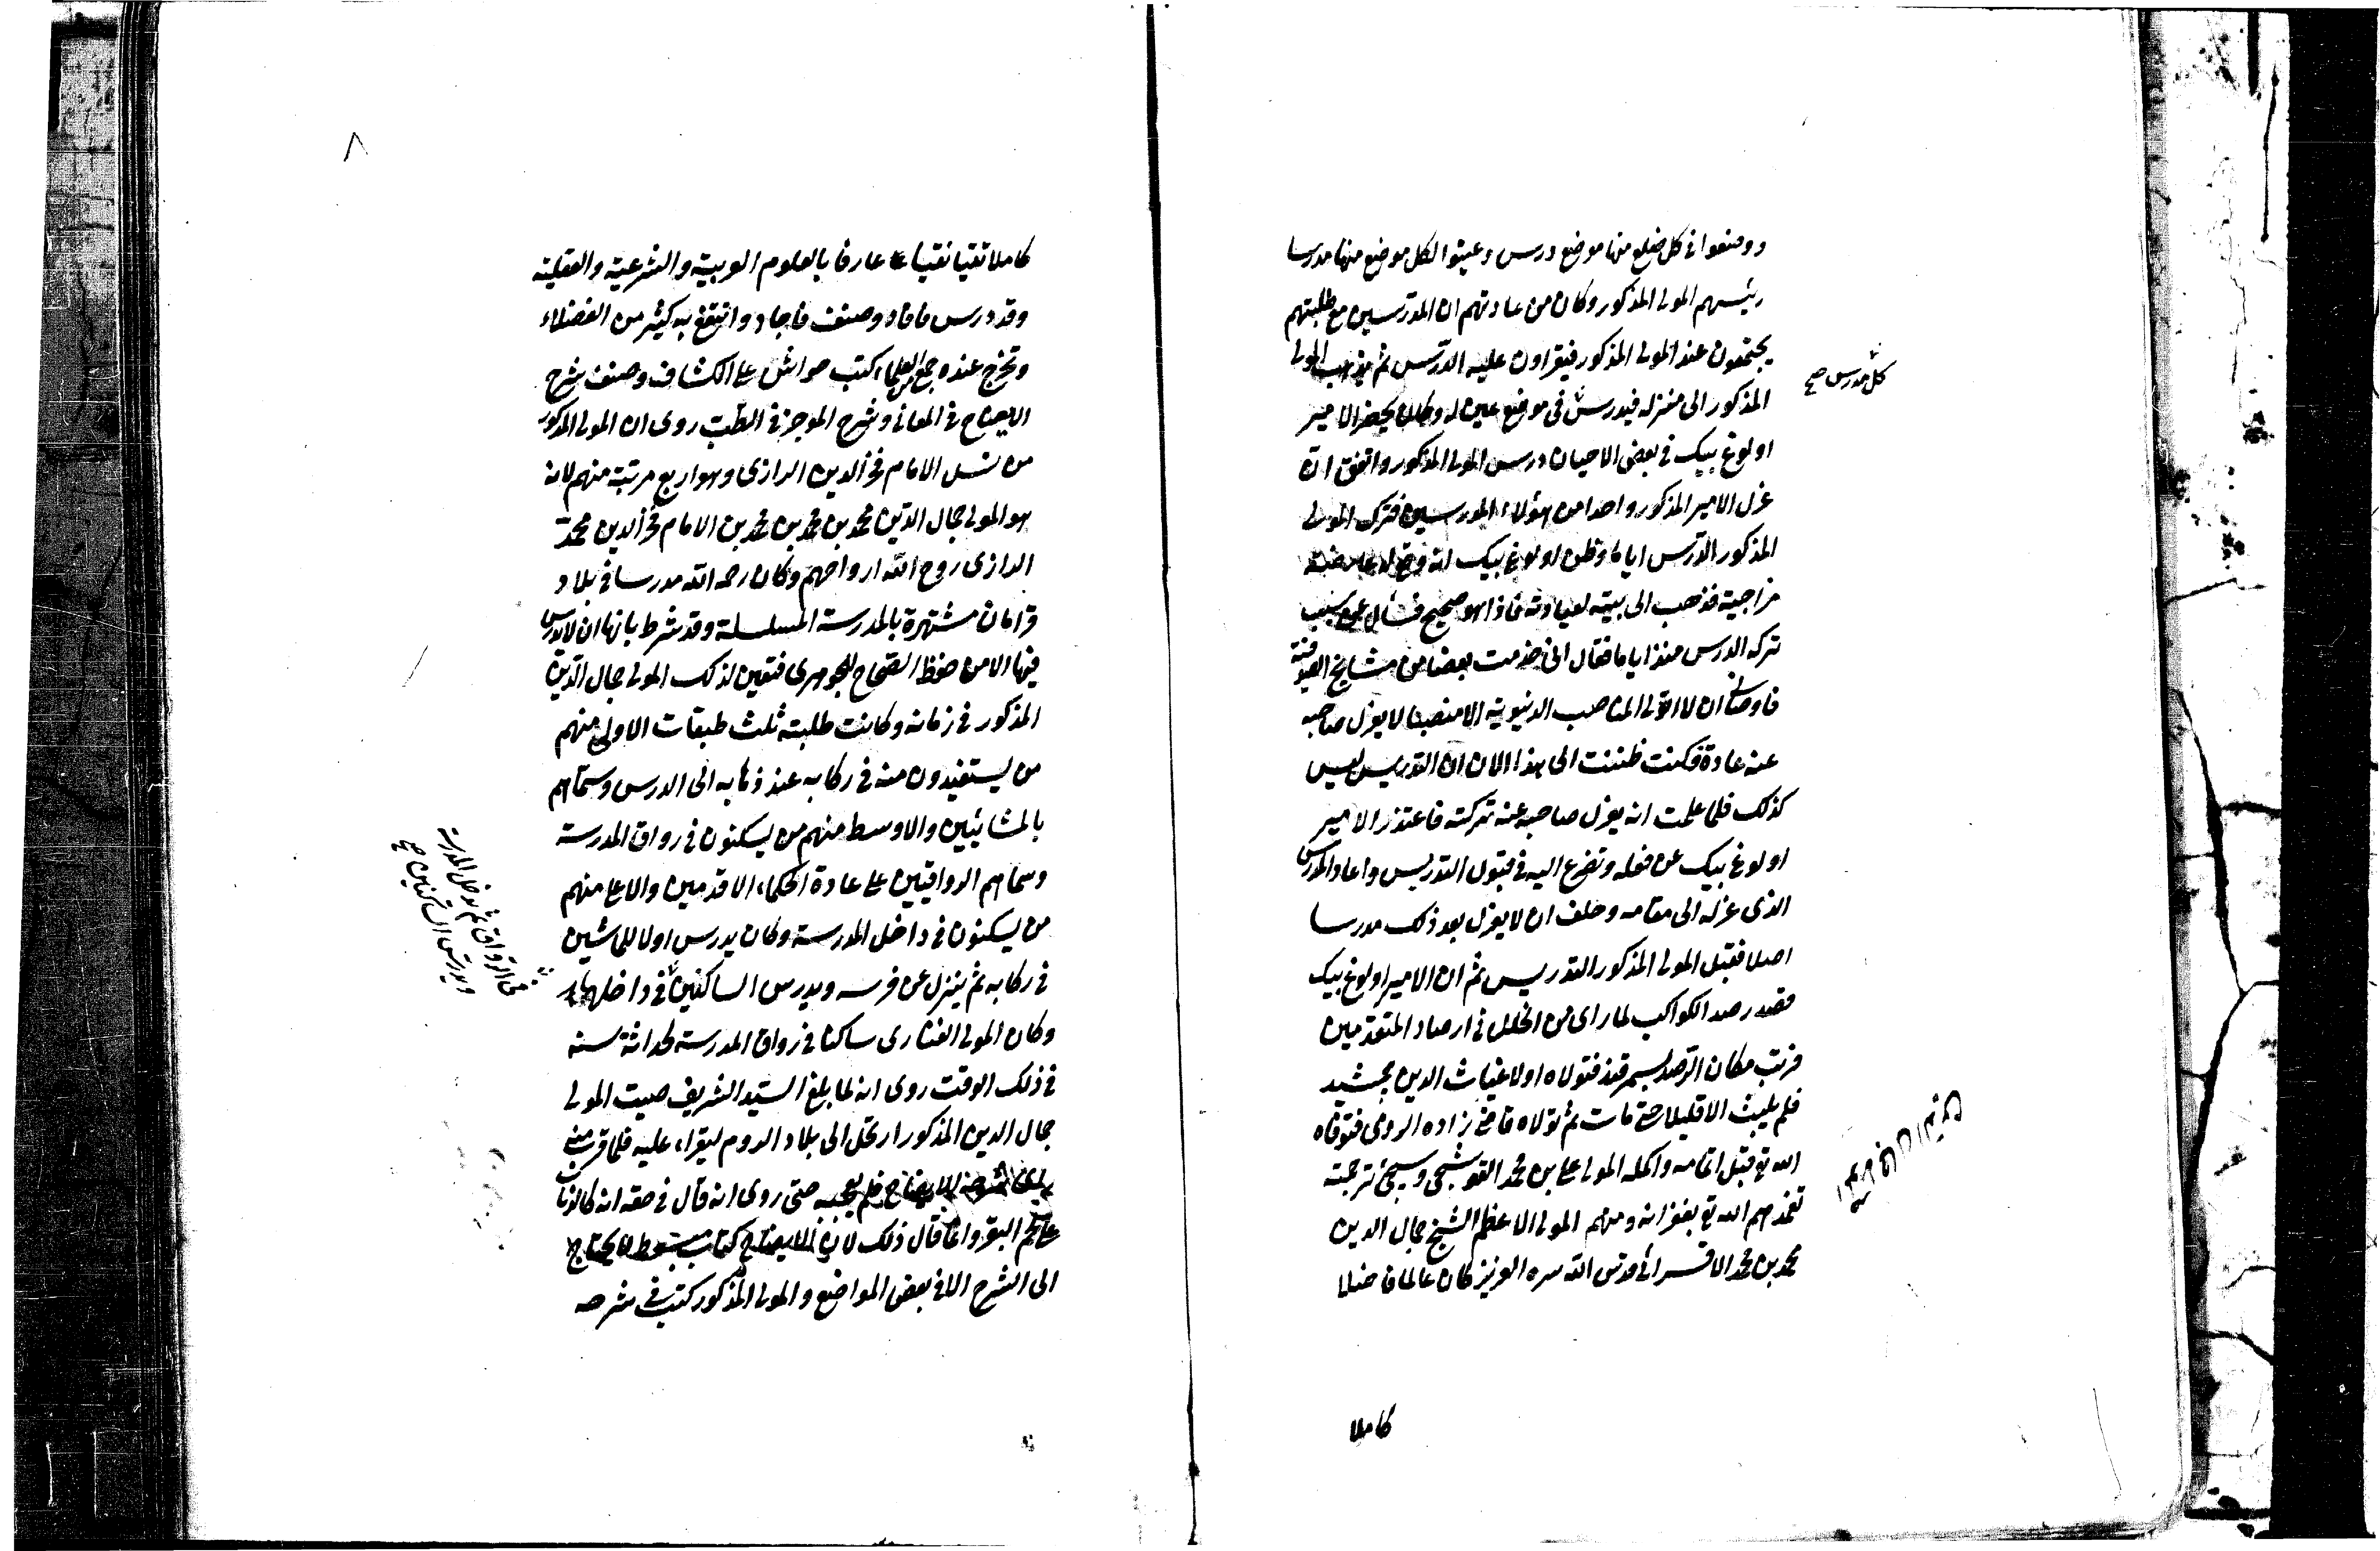 ووضعوا في كل ضلع منها موضع درس وعينوا لكل موضع منها مدرسا
رئيسهم المولى المذكور وكان من عادتهم ان المدرسين مع طلبتهم
يجتمعون عند المولى المذكور فيقراون عليه الدرس ثم يذهب المولى
كل مدرس صح
المذكور الى منزله فيدرس في موضع عين له وكان يحضر الامير
اولوغ بيك في بعض الاحيان درس المولى المذكور واتفق ان
عزل الامير المذكور واحدا من هؤلاء المدرسين فترك المولى
المذكور الدرس اياما وظن اولوغ بيك انه وقع له عارضة
مزاجية فذهب الى بيته لعيادته فاذا هو صحيح فسأل عن سبب
تركه الدرس منذ اياما فقال انى خدمت بعضا من مشايخ الصوفية
فاوصانى ان لا اتولى المناصب الدنيوية الا منصبا لا يعزل صاحبه
عنه عادة فكنت ظننت الى هذا الان ان التدريس ليس
كذلك فلما علمت انه يعزل صاحبه عنه تركته فاعتذر الامير
اولوغ بيك عن فعله وتضرع اليه في قبول التدريس واعاد المدرس
الذى عزله الى مقامه وحلف ان لا يعزل بعد ذلك مدرسا
اصلا فقبل المولى المذكور التدريس ثم ان الامير اولوغ بيك
قصد رصد الكواكب لما راى من الخلل في ارصاد المتقدمين
فرتب مكان الرصد بسمرقند فتولاه اولا غياث الدين جمشيد
فلم يلبث الا قليلا حتى مات ثم تولاه قاضى زاده الرومى فتوفاه
الله تع قبل اتمامه واكمله المولى على بن محمد القوشجى وسيجئ ترجمته
تغمدهم الله تع بغفرانه ومنهم المولى الاعظم الشيخ جمال الدين
محمد بن محمد الاقسرائى قدس الله سره العزيز كان عالما فاضلا
كاملا
٨
كاملا تقيا نقيا عارفا بالعلوم العربية والشرعية والعقلية
وقد درس فافاد وصنف فاجاد وانتفع به كثير من الفضلاء
وتخرج عنده جمع من العلماء كتب حواش على الكشاف وصنف شرح
الايضاح في المعانى وشرح الموجز في الطب روى ان المولى المذكور
من نسل الامام فخر الدين الرازى وهو اربع مرتبة منهم لانه
هو المولى جمال الدين محمد بن محمد بن محمد بن الامام فخر الدين محمد
الرازى روح الله ارواحهم وكان رحمه الله مدرسا في بلاد
قرامان مشتهرة بالمدرسة المسلسلة وقد شرط بانيها ان لا يدرس
فيها الا من حفظ الصحاح للجوهرى فتعين لذلك المولى جمال الدين
المذكور في زمانه وكانت طلبته ثلث طبقات الاولى منهم
من يستفيدون منه في ركابه عند ذهابه الى الدرس وسماهم
بالمشائيين والاوسط منهم من يسكنون في رواق المدرسة
وسماهم الرواقيين على عادة الحكماء الاقدمين والاعلى منهم
من يسكنون في داخل المدرسة وكان يدرس اولا للمشائين
في ركابه ثم ينزل عن فرسه ويدرس الساكنين في داخلها
في الرواق ثم يدخل المدرسة
ويدرس الساكنين صح
وكان المولى الفنارى ساكنا في رواق المدرسة لحداثة سنه
في ذلك الوقت روى انه لما بلغ السيد الشريف صيت المولى
جمال الدين المذكور ارتحل الى بلاد الروم ليقراء عليه فلما قرب منه
راى شرحه للايضاح فلم يعجبه حتى روى انه قال في حقه انه كالذباب
على لحم البقر وانما قال ذلك لان الايضاح كتاب مبسوط لا يحتاج
الى الشرح الا في بعض المواضع والمولى المذكور كتب في شرحه